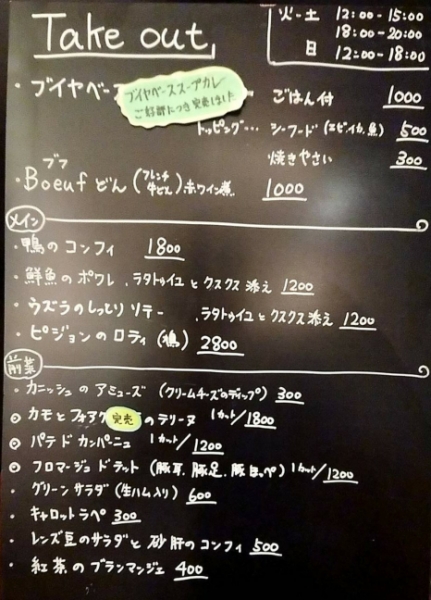 Take out
火-土 12:00-15:00
18:00-20:00
日 12:00-18:00
・ブイヤベー
ブイヤベーススープカレー
ご好評につき完売しました
ごはん付 1000
トッピング… シーフード(エビ、イカ、魚) 500
焼きやさい 300
ブフ
・Boeufどん(フレンチ牛どん)赤ワイン煮 1000
メイン
・鴨のコンフィ 1800
・鮮魚のポワレ、ラタトゥイユとクスクス添え 1200
・ウズラのしっとりソテー 、ラタトゥイユとクスクス添え 1200
・ピジョンのロティ(鳩) 2800
前菜
・カニッシュのアミューズ(クリームチーズのディップ) 300
◎カモとフォアグ 完売 のテリーヌ 1カット/1800
◎パテドカンパーニュ 1カット/1200
◎フロマージュドテット(豚耳、豚足、豚ほっぺ)1カット/1200
・グリーンサラダ(生ハム入り) 600
・キャロットラペ 300
・レンズ豆のサラダと砂肝のコンフィ 500
・紅茶のブランマンジェ 400